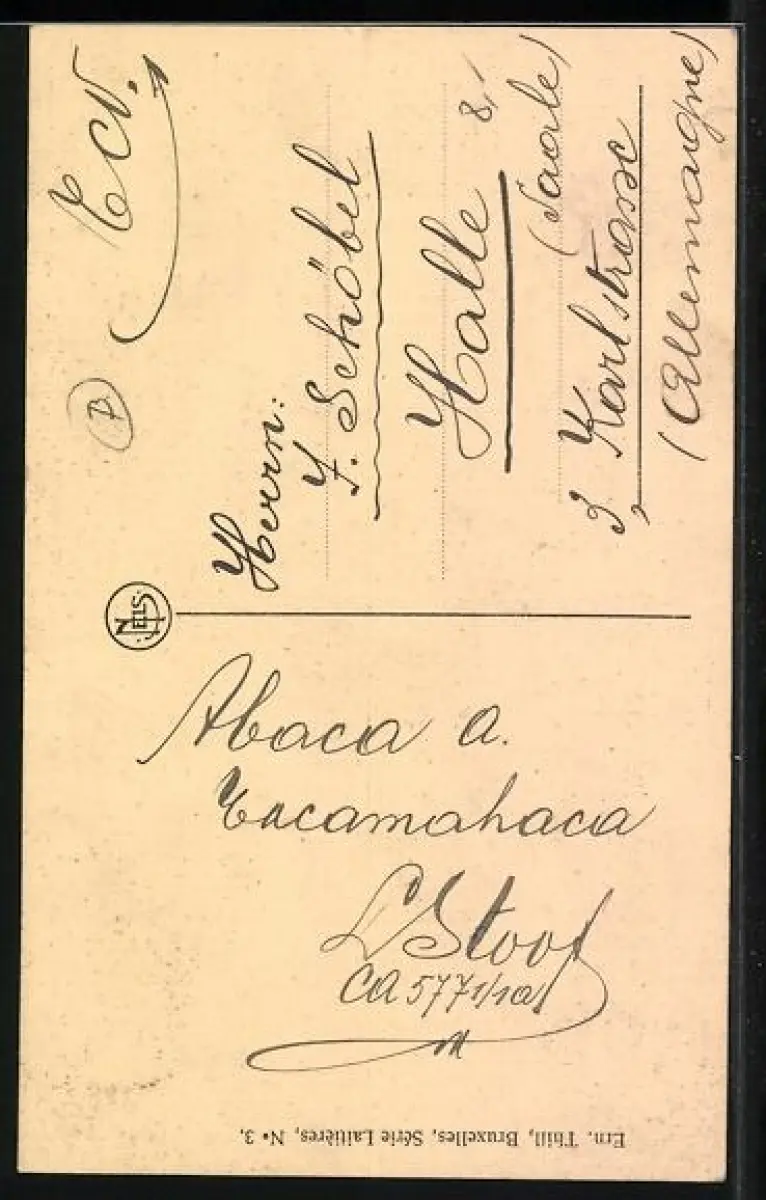 TCV.
Herrn:
F. Schöbel
Halle 8,
(Saale)
3, Karlstrasse
(Allemaigne)
NELS
Abaca a.
Tacamahaca
L Stoof
CA 5771/10a
Ern. Thill, Bruxelles, Série Laitières, N° 3.